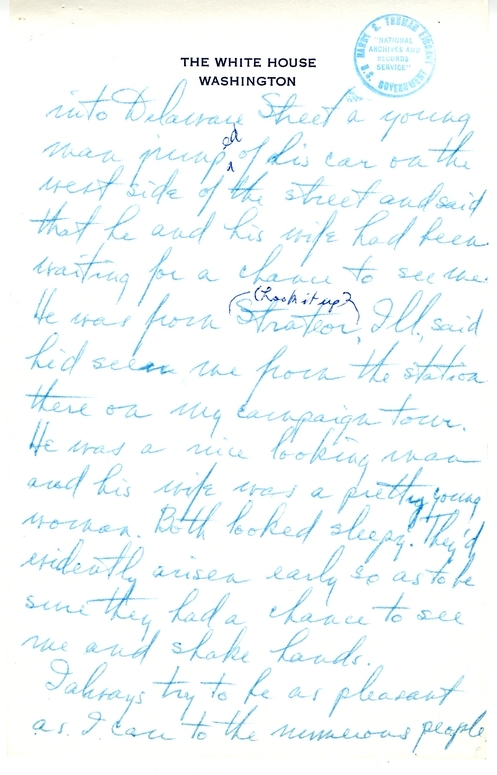 THE WHITE HOUSE
WASHINGTON
HARRY S. TRUMAN LIBRARY
"NATIONAL
ARCHIVES AND
RECORDS
SERVICE"
U.S. GOVERNMENT
into Delaware Street a young
man jumped of his car on the
west side of the street and said
that he and his wife had been
waiting for a chance to see me.
(Look it up?)
He was from Strator, Ill, said
he'd seen me from the station
there on my campaign tour.
He was a nice looking man
and his wife was a pretty young
woman. Both looked sleepy. They'd
evidently arisen early so as to be
sure they had a chance to see
me and shake hands.
I always try to be as pleasant
as I can to the numerous people